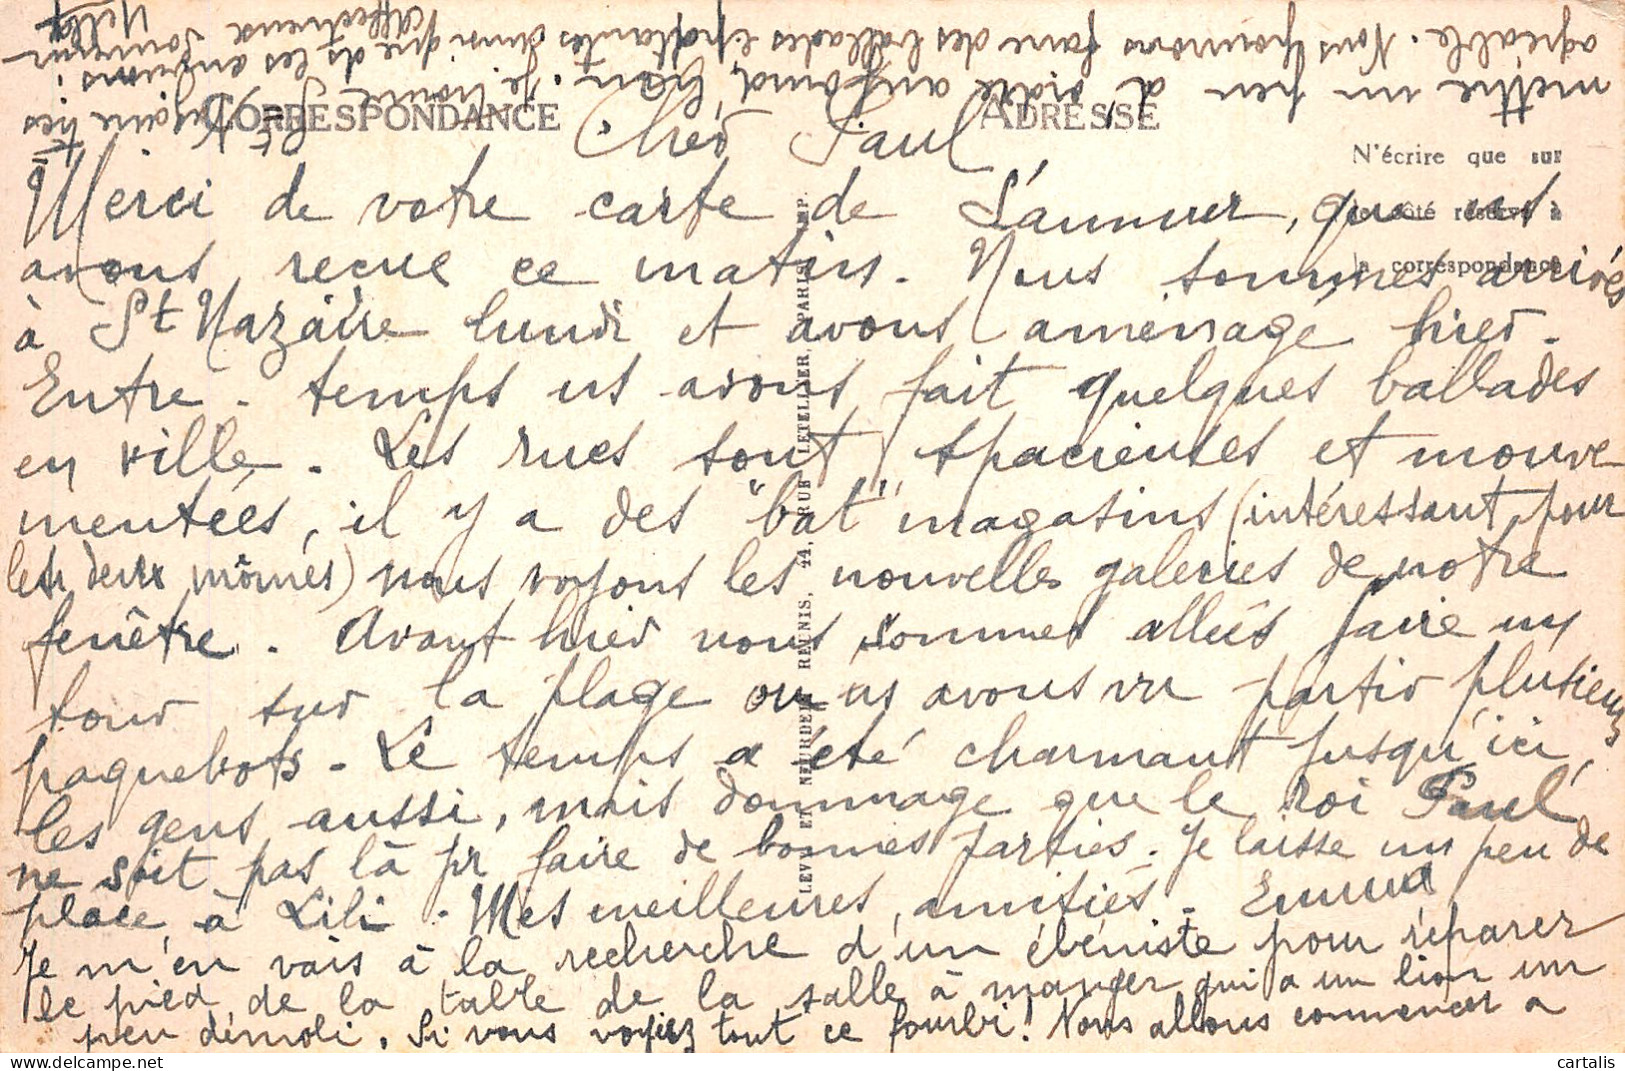 CORRESPONDANCE
ADRESSE
N'écrire que sur
le côté réservé à
la correspondance
Cher Paul
Merci de votre carte de Saumur, que ns
avons reçue ce matin. Nous sommes arrivés
à St Nazaire lundi et avons aménagé hier.
Entre-temps ns avons fait quelques ballades
en ville. Les rues sont spacieuses et mouve
mentées, il y a des "bat" magasins (intéressant pour
les deux mômes) nous voyons les nouvelles galeries de notre
fenêtre. Avant hier nous sommes allés faire un
tour sur la plage ou ns avons vu partir plusieurs
paquebots. Le temps a été charmant jusqu'ici,
les gens aussi, mais dommage que le roi Paul
ne soit pas là pr faire de bonnes parties. Je laisse un peu de
place à Lili. Mes meilleures amitiés. Emma
Je m'en vais à la recherche d'un ébéniste pour réparer
le pied de la table de la salle à manger qui a un lion un
peu démoli. Si vous voyiez tout ce fourbi! Nous allons commencer à
mettre un peu d'ordre aujourd'hui. Je trouve St Nazaire très
agréable. Nous pourrons faire des ballades épatantes ainsi que ds les environs.
Affectueux souvenir
LEVY ET NEURDEIN RÉUNIS, 44, RUE LETELLIER, PARIS. IMP.
cartalis